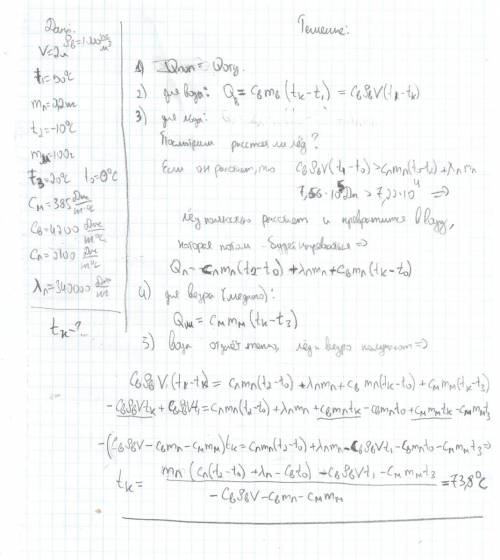 Дано:
ρв=1·10³ кг/м³
V=2л
t₂=-10°C
t₃=20°C t₀=0°C
Cм=385 Дж/м·°C
Cв=4200 Дж/м°C
Cл=2100 Дж/м°C
λл=340000 Дж/м
tк-?
Решение:
1) Qпол= Qотд.
2) для воды: Qв = Cвmв(tк-t₁) = CвρвV(tк-t₁)
3) для льда:
Посмотрим растает ли лёд?
Если он растает, то CвρвV(t₁-t₀)>Cлmл(t₂-t₀)+λлmл
=>
лёд полностью растает и превратится в воду,
которая потом будет нагреваться =>
Qл= Cлmл(t₂-t₀)+λлmл+Cвmл(tк-t₀)
4) для ведра (медного):
Qм=Cмmм(tк-t₃)
5) вода отдаёт тепло, лёд и ведро получают =>
CвρвV(t₁-tк)= Cлmл(t₂-t₀)+λлmл+Cвmл(tк-t₀)+Cмmм(tк-t₃)
-CвρвVtк+CвρвVt₁=Cлmл(t₂-t₀)+λлmл+Cвmлtк-Cвmлt₀+Cмmмtк-Cмmмt₃
-(CвρвV-Cвmл-Cмmм)tк=Cлmл(t₂-t₀)+λлmл-CвρвVt₁-Cвmлt₀-Cмmмt₃=>
tк= mл(Cл(t₂-t₀)+λл-Cвt₀)-CвρвVt₁-Cмmмt₃ / -CвρвV-Cвmл-Cмmм =73,8°C